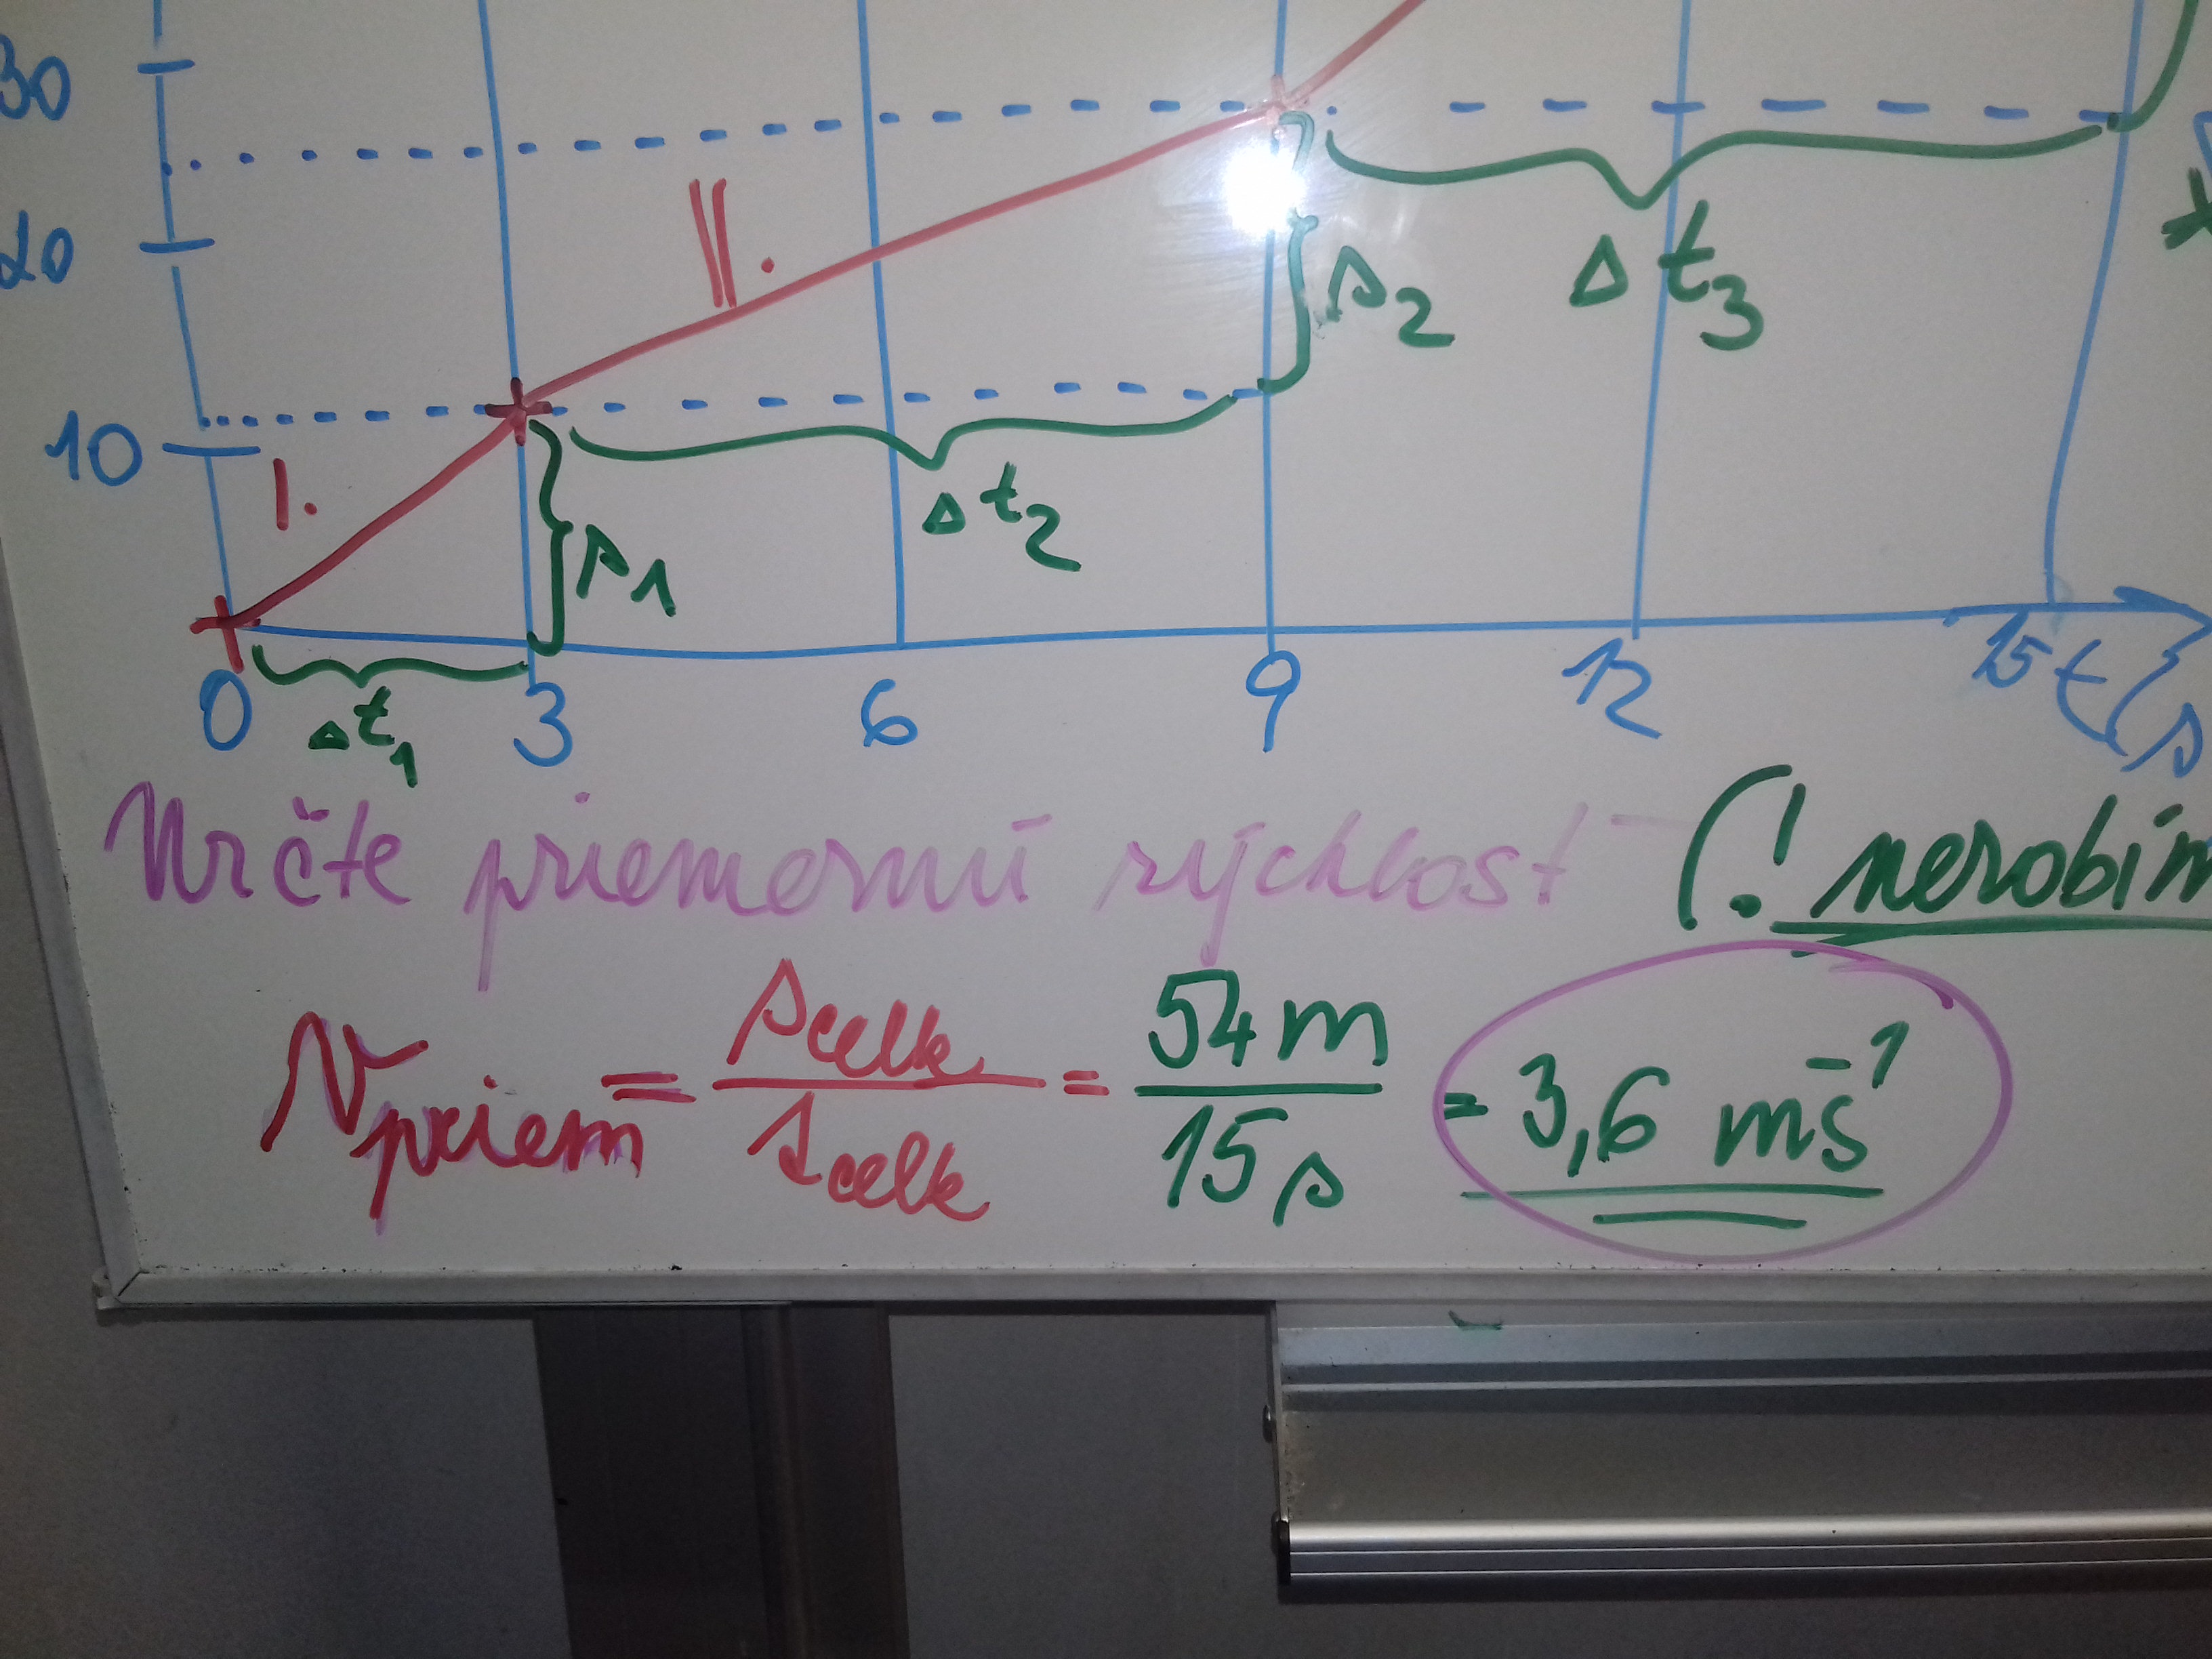 30
II.
20
s₂
Δt₃
10
I.
Δt₂
s₁
0 3 6 9 12 15 t(s
Δt₁
Určte priemernú rýchlosť (! nerobím
v priem = s celk / s celk = 54 m / 15 s = 3,6 ms⁻¹